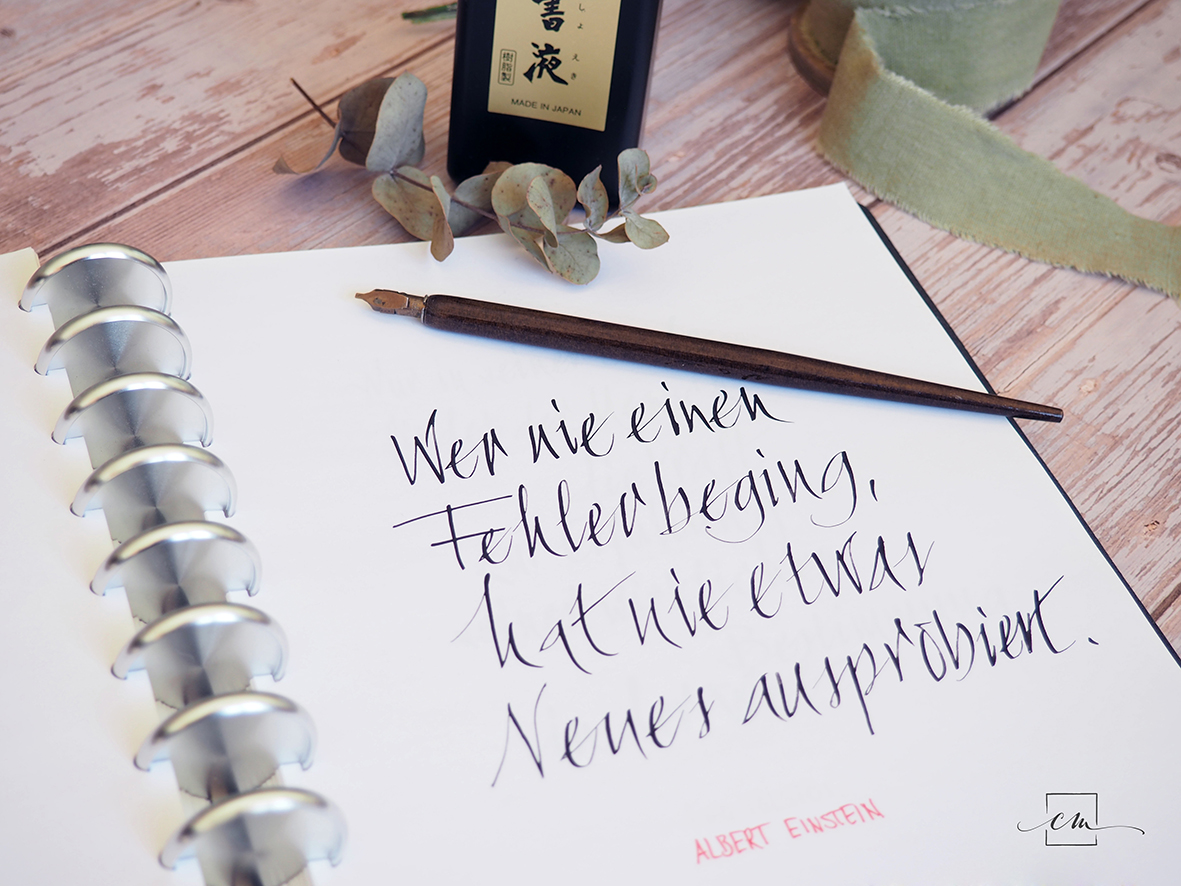 書液
しょえき
樹脂製
MADE IN JAPAN
Wer nie einen
Fehler beging,
hat nie etwas
Neues ausprobiert.
ALBERT EINSTEIN
cm